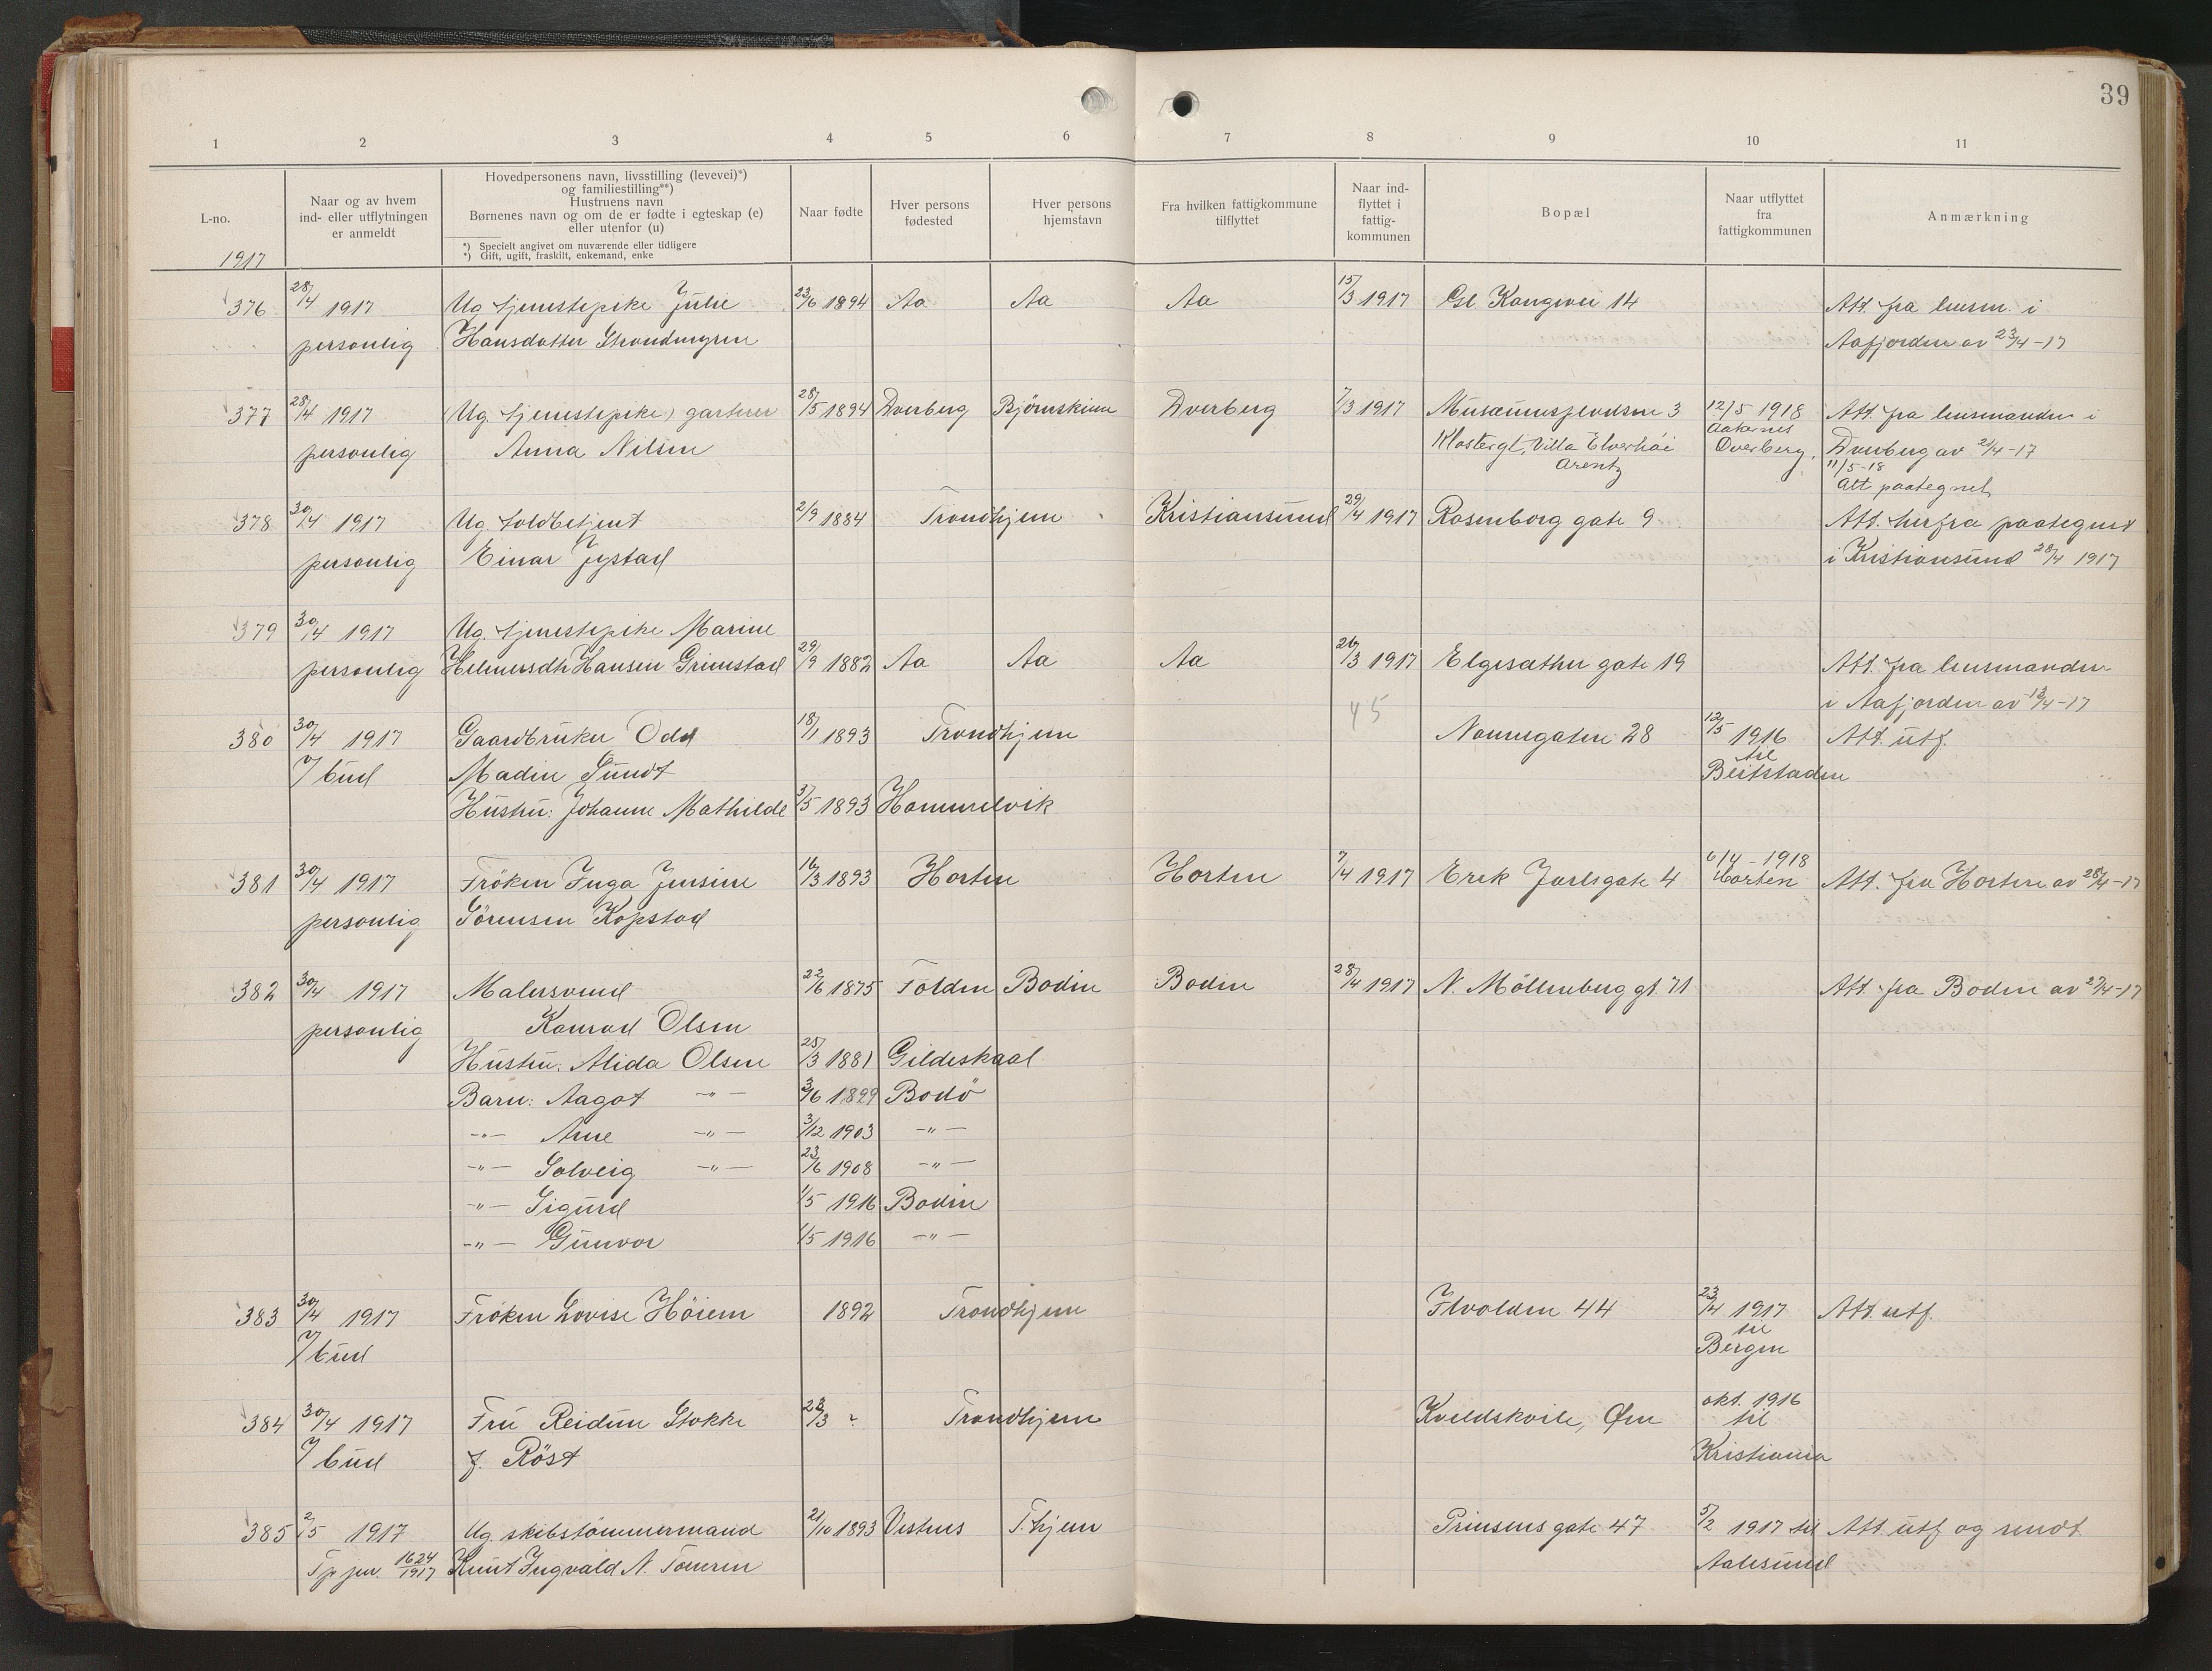 39
1 2 3 4 5 6 7 8 9 10 11
L-no.
1917
Naar og av hvem
ind- eller utflytningen
er anmeldt
Hovedpersonens navn, livsstilling (levevei)*)
og familiestilling**)
Hustruens navn
Børnenes navn og om de er fødte i egteskap (e)
eller utenfor (u)
*) Specielt angivet om nuværende eller tidligere
*) Gift, ugift, fraskilt, enkemand, enke
Naar fødte
Hver persons
fødested
Hver persons
hjemstavn
Fra hvilken fattigkommune
tilflyttet
Naar ind-
flyttet i
fattig-
kommunen
Bopæl
Naar utflyttet
fra
fattigkommunen
Anmærkning
376 28/4 1917 Ug. tjenestepike Julie 23/6 1894 Aa Aa Aa 15/3 1917 Gl. Kongevei 14 Att. fra lensm. i
personlig Hansdatter Strandengren Aafjorden av 23/4-17
377 28/4 1917 (Ug. tjenestepike) gartner 28/5 1894 Dverberg Bjørnskinn Dverberg 1/3 1917 Musæumspladsen 3 12/5 1918 Att. fra lensmanden i
personlig Anna Nilsen Klostergt, Villa Elverhøi Aakernes Dverberg av 21/4-17
Arentz Dverberg. 11/5-18
Att paategnet
378 30/4 1917 Ug. toldbetjent 2/9 1884 Trondhjem Kristiansund 29/4 1917 Rosenborg gate 9 Att. herfra paategnet
personlig Einar Jystad i Kristiansund 28/4 1917
379 30/4 1917 Ug. tjenestepike Marine
personlig Helmersdtr Hansen Grimstad 29/9 1882 Aa Aa Aa 26/3 1917 Elgesæther gate 19 Att. fra lensmanden
45 i Aafjorden av 13/4-17
380 30/4 1917 Gaardbruker Odd 18/1 1893 Trondhjem Nonnegaten 28 12/5 1916 Att. utf.
v/ bud Madin Sundt til
Beitstaden
Hustru: Johanne Mathilde 3/5 1893 Hommelvik
381 30/4 1917 Frøken Inga Jensine 16/3 1893 Horten Horten 7/4 1917 Erik Jarlsgate 4 6/4 - 1918 Att. fra Horten av 28/4-17
Horten
personlig Sørensen Kopstad
382 30/4 1917 Malersvend 22/6 1875 Folden Bodin Bodin 28/4 1917 N. Møllenberg gt. 71 Att. fra Bodin av 23/4-17
personlig Konrad Olsen
Hustru: Alida Olsen 25/3 1881 Gildeskaal
Barn: Aagot -"- 3/6 1899 Bodø
-"- Arne -"- 3/12 1903 -"-
-"- Solveig -"- 23/6 1908 -"-
-"- Sigurd 1/5 1916 Bodin
-"- Gunvor 1/5 1916 -"-
383 30/4 1917 Frøken Lovise Høiem 1892 Trondhjem Ilvolden 44 23/4 1917 Att. utf.
v/ bud til
Bergen
384 30/4 1917 Fru Reidun Stokke 28/3 ? Trondhjem Kveldskvile, Øen okt. 1916
til
v/ bud f. Røst Kristiania
385 2/5 1917 Ug. skibstømmermand 21/10 1893 Vestnes T.hjem Prinsens gate 47 5/2 1917 til Att. utf og sendt
1624/1917 Knut Ingvald N. Tomren Aalesund